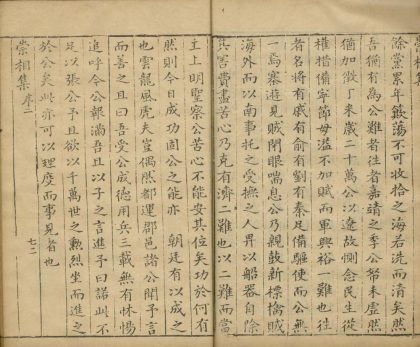 餘黨累年鼓蕩不可收拾之海若洗而清矣然
吾猶有為公難者往者嘉請之季公帑未虛然
猶加徵丁米歲二十萬公以遼故惻念民生從
權措備寧節毋溢不加賦而軍興裕一難也往
者名將有戚有俞有劉有秦足備驅使而公無
一焉寨遊見賊閉眼喘息公乃親鼓新標擒賊
海外而以南事托之受撫之人弁以船器自除
其害費盡苦心乃克有濟二難也以二難而當
主上明聖察公苦心不能安其位矣功於何有
然則今日成功固公之能亦 朝廷有以成之
也雲龍風虎夫豈偶然都運郡邑諸公聞予言
而善之且曰吾受公成德用兵三載無有怵惕
追呼今公報滿吾且以子之言進予曰諾此不
足以張公予且欲以千萬世之勲烈坐而進之
於公矣此亦可以理度而事見者也
崇相集 序二 七二